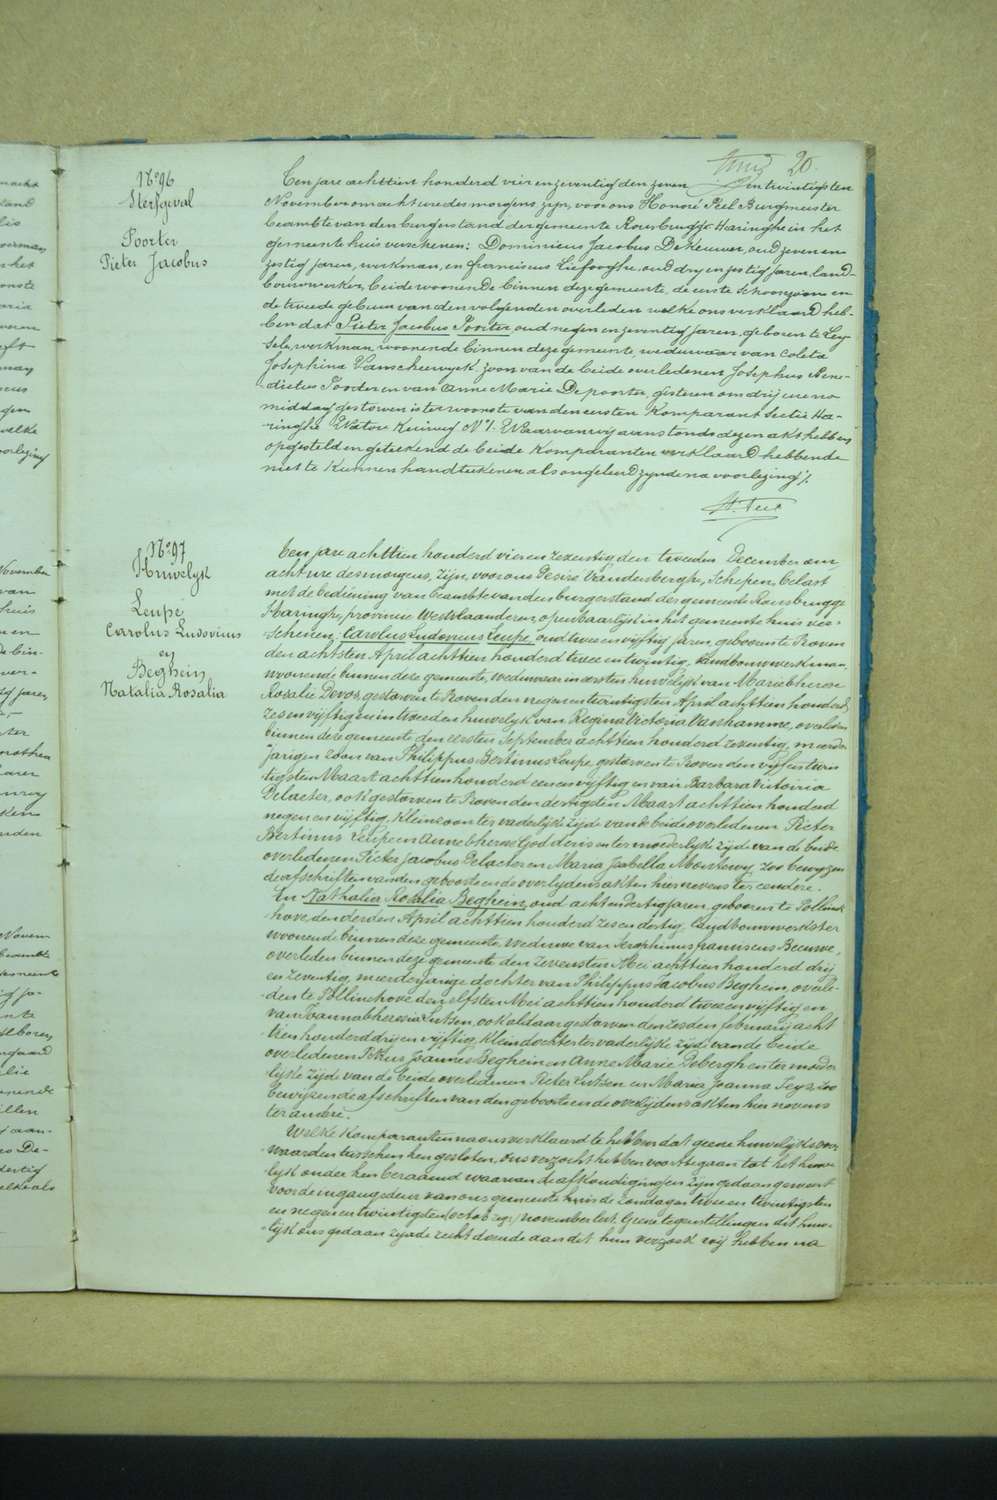 20
N° 96
Sterfgeval
Poorter
Pieter Jacobus
Een jare achttien honderd vier en zeventig den zeven en twintigsten
November om acht ure des morgens, zijn, voor ons Honoré Feel Burgmeister
beambte van den burgerstand der gemeente Rousbrugge Haringhe in het
gemeente huis verschenen: Dominicus Jacobus De Keuwer, oud zeven en
zestig jaren, werkman, en franciscus Liefooghe, oud dry en zestig jaren, land-
bouwwerker, beide woonende binnen deze gemeente, de eerste schoonzoon en
de tweede gebuur van den volgenden overleden welke ons verklaard heb-
ben dat Pieter Jacobus Poorter, oud negen en zeventig jaren, geboren te Ley-
sele, werkman, woonende binnen deze gemeente weduwaar van Coleta
Josephina Vanscheewyck zoon van de beide overledenen Josephus Bene-
dictus Poorter en van Anne Marie Depoorter, gisteren om drij ure na
middag gestorven is ter woonste van den eersten Komparant sectie Ha-
ringhe Watou Kuiweg N° 1. Waarvan wij aanstonds dezen akt hebben
opgesteld en geteekend de beide Komparanten verklaard hebbende
niet te kunnen handteekenen als ongeleerd zynde na voorlezing ./.
H. Feel
N° 97
Huwelyk
Leupe
Carolus Ludovicus
en
Beghein
Natalia Rosalia
Een jare achttien honderd vier en zeventig den tweeden December om
acht ure des morgens, zijn, voor ons Desiré Vandenberghe, Schepen, belast
met de bediening van beambte van den burgerstand der gemeente Rousbrugge
Haringhe, provincie Westvlaanderen, openbaarlijk in het gemeente huis ver-
schenen: Carolus Ludovicus Leupe oud twee en vyftig jaren, geboren te Roven
den achtsten April achttien honderd twee en twintig, Landbouwwerkman,
woonende binnen deze gemeente, weduwaar in eersten huwelijk van Marie Therese
Rosalie Devos, gestorven te Roven den negen en twintigsten April achttien honderd
zes en vyftig en in tweeden huwelyk van Regina Victoria Vanhamme, overleden
binnen deze gemeente den eersten September achttien honderd zeventig, meerder
jarigen zoon van Philippus Bertinus Leupe gestorven te Roven den vyf en twin
tigsten Maart achttien honderd een en vyftig en van Barbara Victoria
Delaeter, ook gestorven te Roven den dertigsten Maart achttien honderd
negen en vyftig, Kleinzoon ter vaderlyke zyde van de beide overledenen Pieter
Bertinus Leupe en Anne Therese Goddens en ter moederlyke zyde van de beide
overledenen Pieter Jacobus Delaeter en Maria Isabella Monteny, zoo bewyzen
de afschriften van den geboorte en de overlydensakten hier nevens ter eendere.
En Nathalia Rosalia Beghein, oud acht en dertig jaren, geboren te Pollinck
hove den derden April achttien honderd zes en dertig, landbouwwerkster
woonende binnen deze gemeente, Weduwe van Seraphinus franciscus Beeuwe,
overleden binnen deze gemeente den zevensten Mei achttien honderd drij
en zeventig, meerderjarige dochter van Philippus Jacobus Beghein, overle-
den te Pollinchove den elfsten Mei achttien honderd twee en vyftig en
van Joanna Theresia Lutsen, ook aldaar gestorven den zesden february acht
tien honderd drij en vyftig, Kleindochter ter vaderlyke zyde van de beide
overledenen Petrus Joannes Beghein en Anne Marie Debergh en ter moeder
lyke zyde van de beide overledenen Pieter Lutsen en Maria Joanna Seys zoo
bewyzen de afschriften van den geboorte en de overlydensakten hier nevens
ter andre.
Welke Komparanten na ons verklaard te hebben dat geene huwelyksvoor
waarden tusschen hen gesloten, ons verzocht hebben voort te gaan tot het huwe
lyk onder hen beraamd waarvan de afkondigingen zijn gedaan geweest
voor de ingangdeur van ons gemeente huis de zondagen twee en twintigsten
en negen en twintigsten november lest. Geene tegenstellingen dit huwe-
lijk ons gedaan zijnde recht doende aan dit hun verzoek wij hebben na